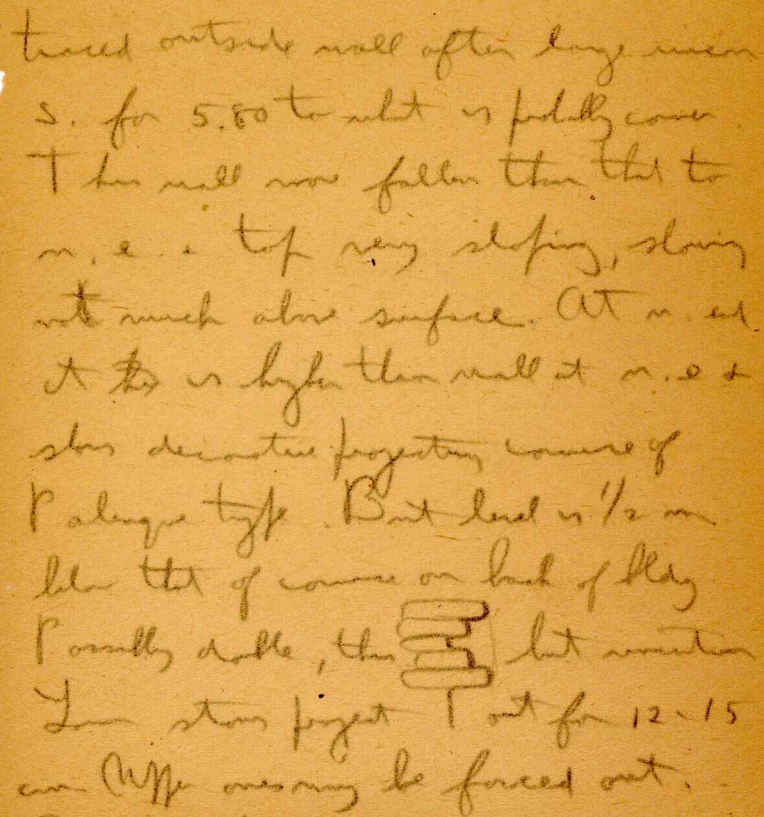 traced outside wall after large
S. for 5.80 to what is probably corner
This wall more fallen than that to
n.e. & top very sloping, showing
not much above surface. At n. end
it is higher than wall at n.e. &
shows decorative projecting course of
Palenque type. But level is 1/2 m
below that of course on back of bldg
Possibly double, thus but uncertain
Lower stones project out for 12-15
cm Upper ones may be forced out.